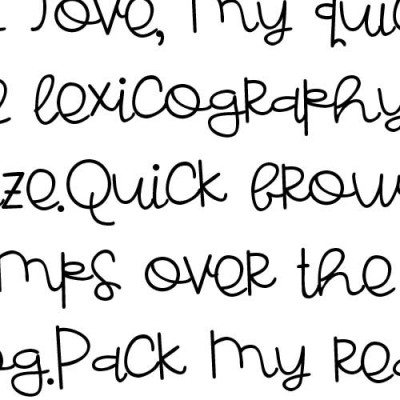 Jove, my quic
e lexicography
ze.Quick brow
mps over the
og.Pack my re